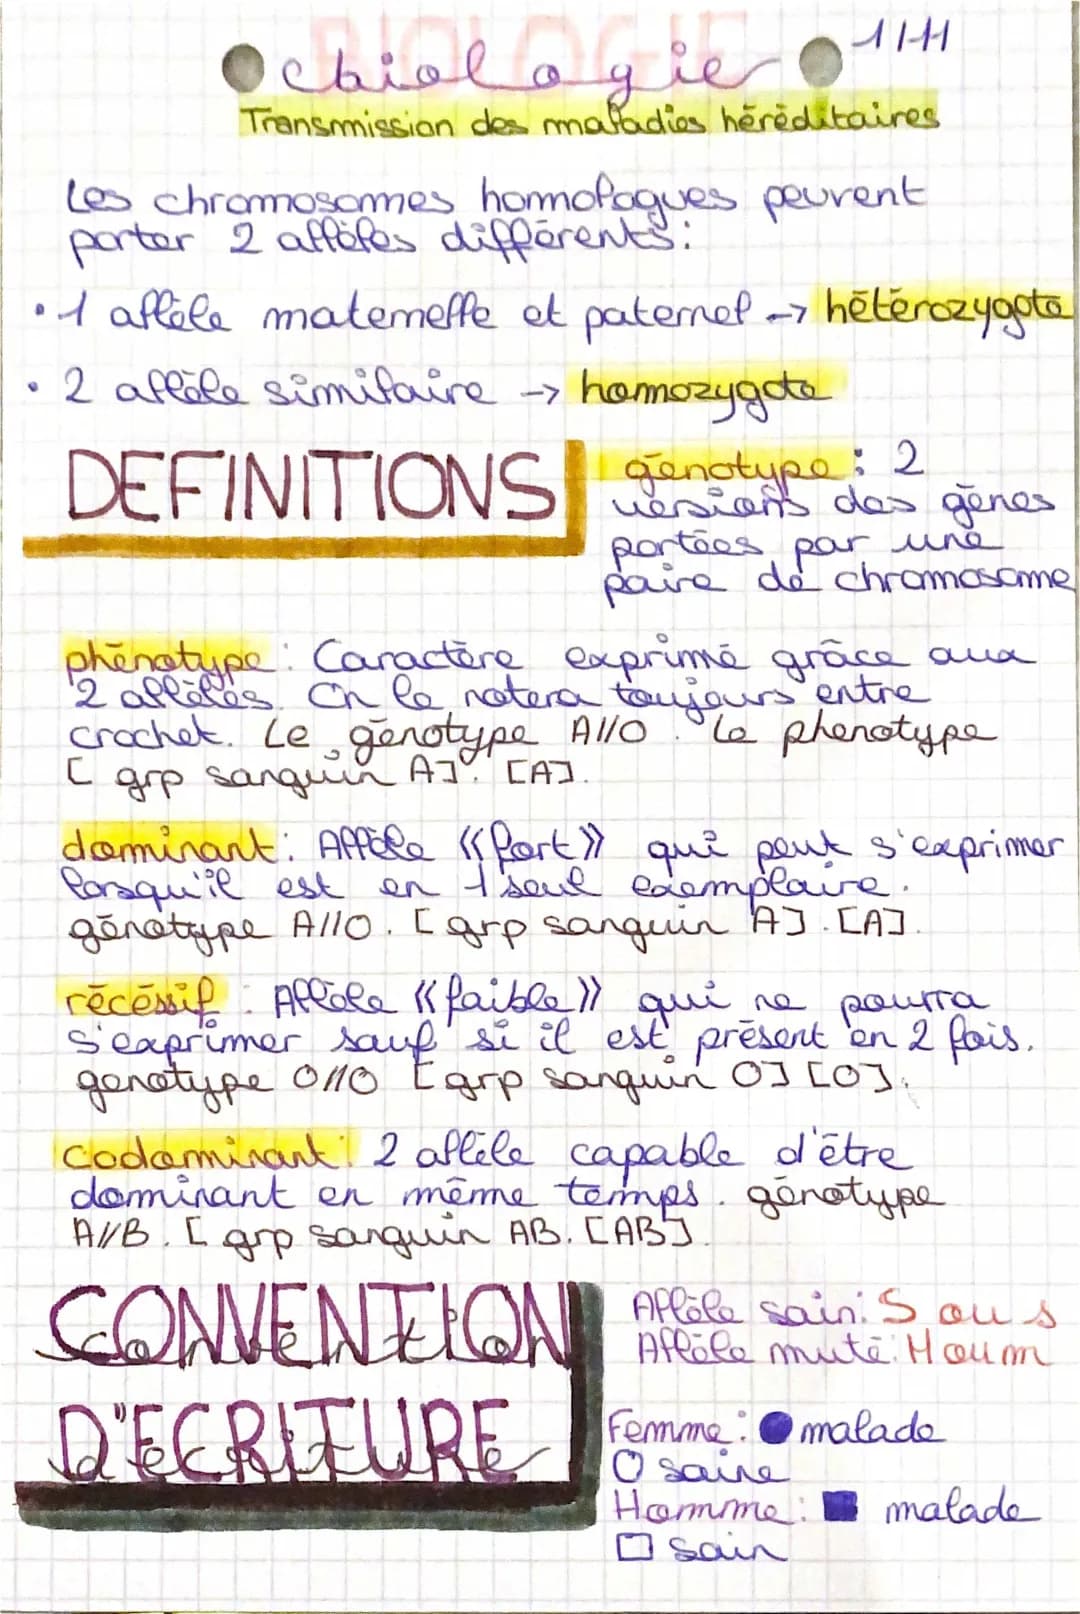 BIOLOGIE
biologie
Transmission des maladies héréditaires
Les chromosomes homologues peuvent
porter 2 allèles différents:
• 1 allèle maternelle et paternel -> hétérozygote
• 2 allèle similaire -> homozygote
DEFINITIONS
génotype : 2
versions des gènes
portées par une
paire de chromosome
phénotype : Caractère exprimé grâce aux
2 allèles. On le notera toujours entre
crochet. Le génotype A//O. Le phenotype
[ grp sanguin A]. [A].
dominant : Allèle «fort» qui peut s'exprimer
lorsqu'il est en 1 seul exemplaire.
génotype A//O. [grp sanguin A]. [A].
récéssif : Allèle «faible» qui ne pourra
s'exprimer sauf si il est présent en 2 fois.
genotype O//O [grp sanguin O] [O].
codominant : 2 allèle capable d'être
dominant en même temps. génotype
A//B. [ grp sanguin AB. [AB].
CONVENTION
D'ECRITURE
Allèle sain: S ou s
Allèle muté: M ou m
Femme : malade
saine
Homme : malade
sain